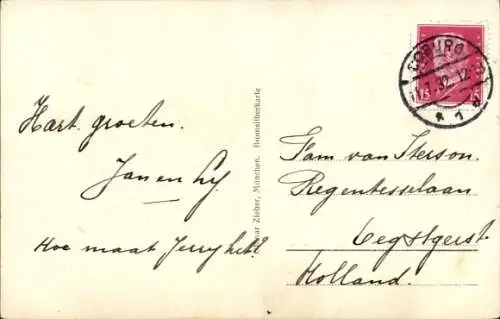 Hart. groeten.
Jan en Ly.
Hoe maat Jerry het?
Zieher, München. Bromsilberkarte
COBURG
32. 12-
* 1 d
15 15
Fam van Iterson.
Regentesselaan
Oegstgeest.
Holland.